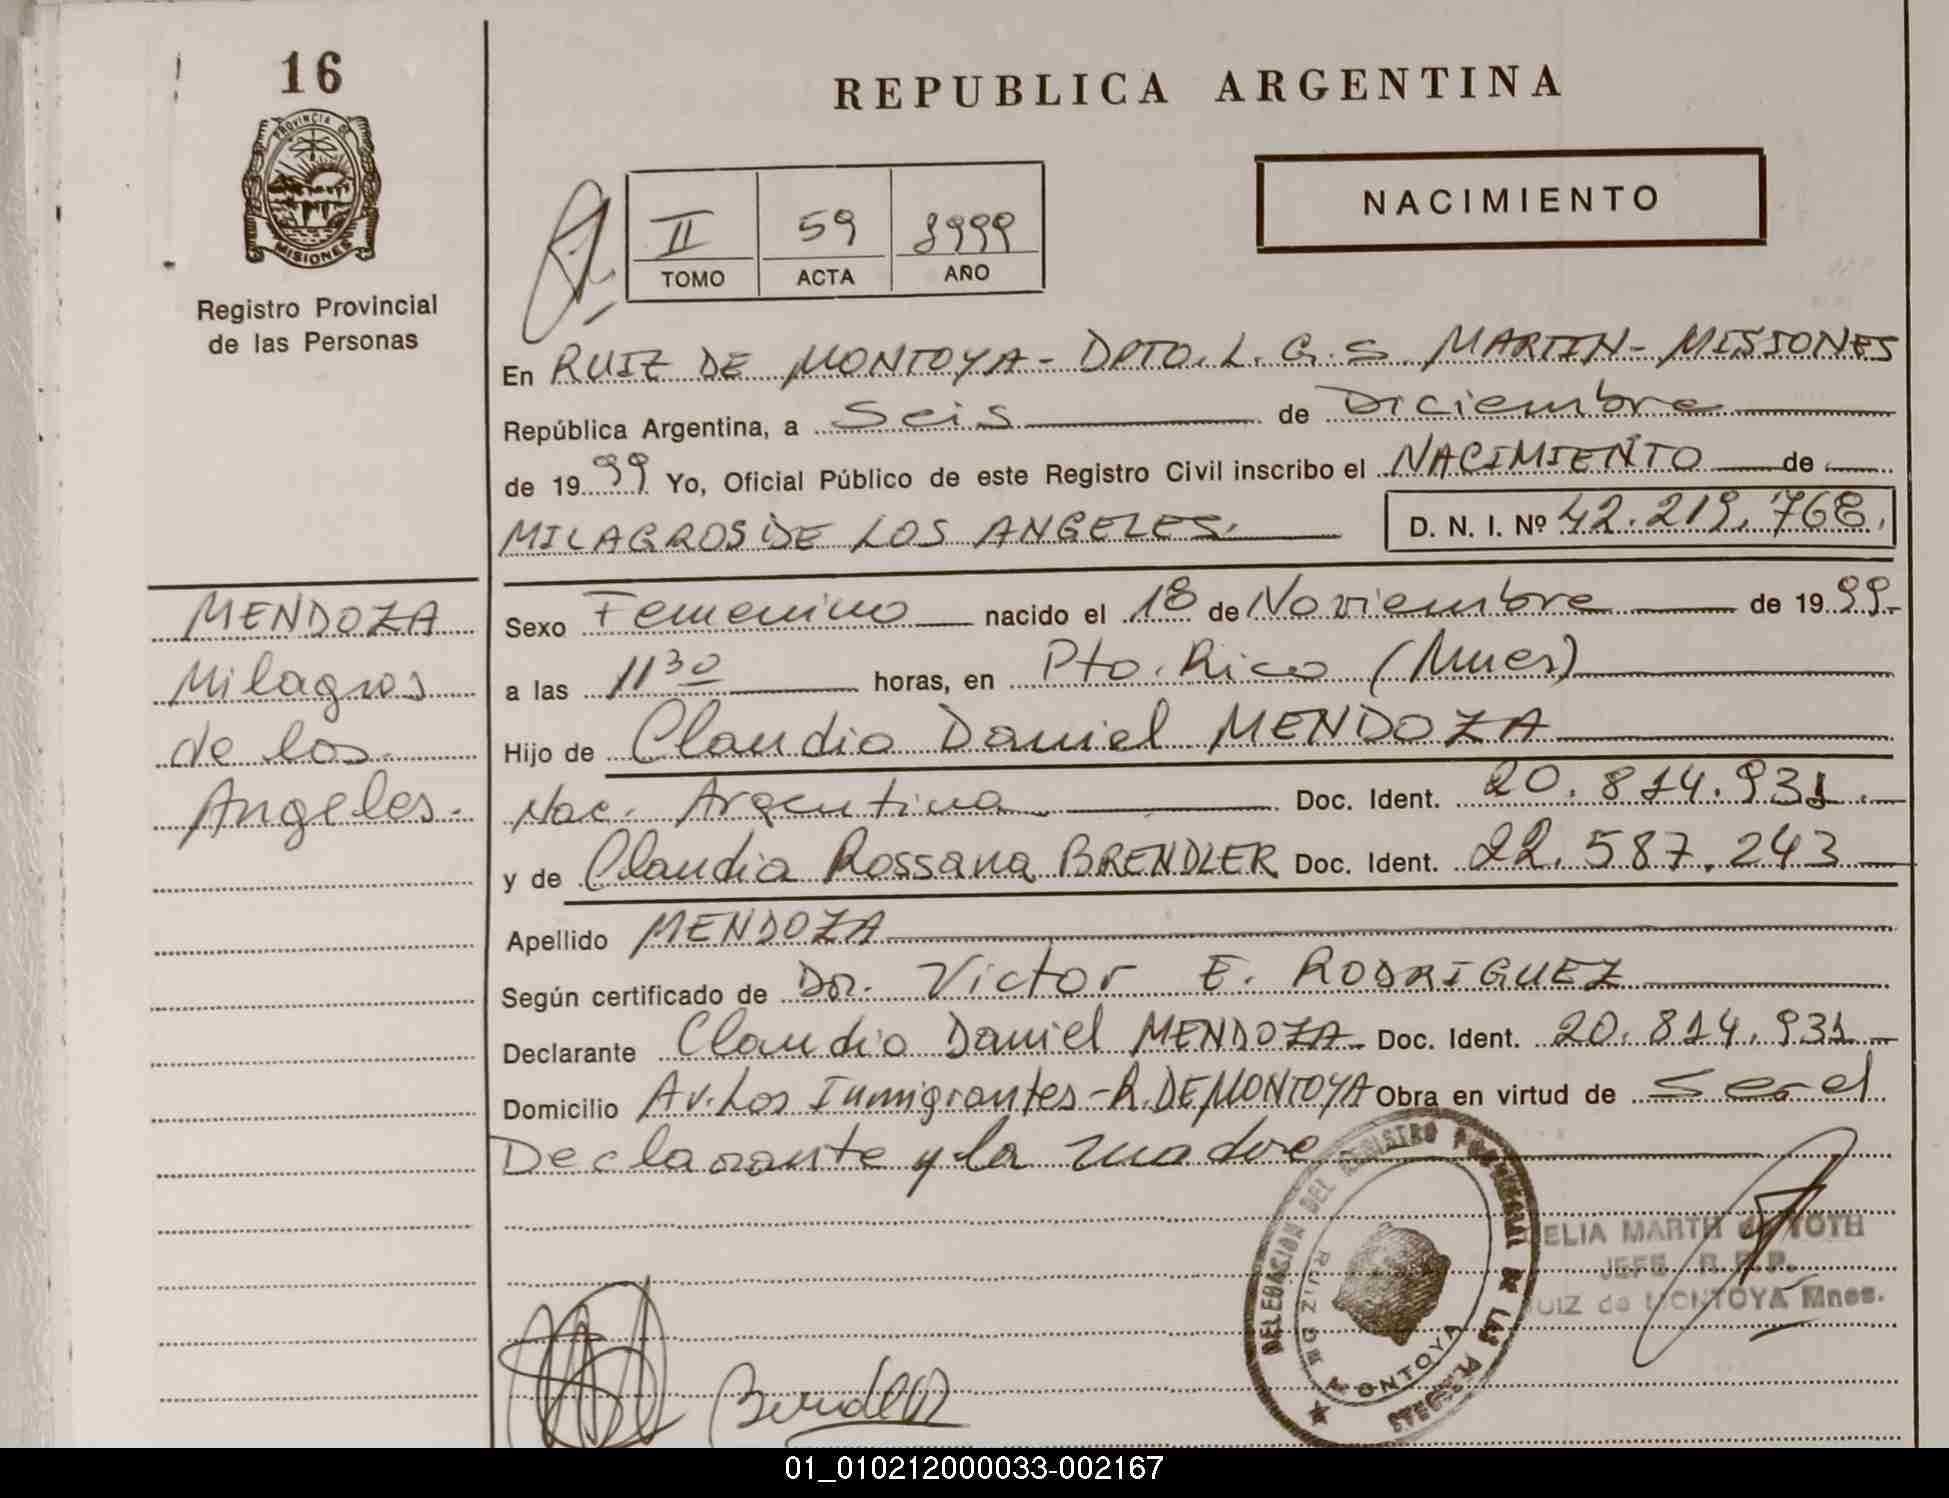 16
PROVINCIA DE
MISIONES
Registro Provincial
de las Personas
REPUBLICA ARGENTINA
NACIMIENTO
II 59 1999
TOMO ACTA AÑO
En RUIZ DE MONTOYA - DPTO. L. G. S MARTIN - MISIONES
República Argentina, a Seis de Diciembre
de 1999 Yo, Oficial Público de este Registro Civil inscribo el NACIMIENTO de
MILAGROS DE LOS ANGELES. D. N. I. Nº 42.219.768.
MENDOZA
Milagros
de los
Angeles.
Sexo Femenino nacido el 18 de Noviembre de 1999
a las 11 30 horas, en Pto. Rico (Mnes)
Hijo de Claudio Daniel MENDOZA
Nac. Argentina Doc. Ident. 20.814.931.
y de Claudia Rossana BRENDLER Doc. Ident. 22.587.243
Apellido MENDOZA
Según certificado de Dr. Victor E. RODRIGUEZ
Declarante Claudio Daniel MENDOZA Doc. Ident. 20.814.931
Domicilio Av. Los Inmigrantes - R. DE MONTOYA Obra en virtud de Ser el
Declarante y la madre
DELEGACION DEL REGISTRO PROVINCIAL DE LAS PERSONAS
RUIZ DE MONTOYA
ELIA MARTA de TOTH
JEFE R.P.P.
RUIZ de MONTOYA Mnes.
01_010212000033-002167